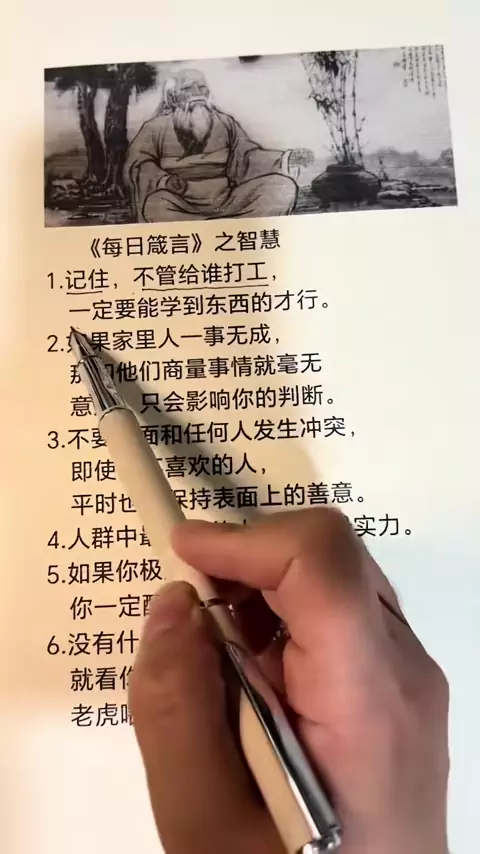 《每日箴言》之智慧
1.记住，不管给谁打工，
一定要能学到东西的才行。
2.如果家里人一事无成，
他们商量事情就毫无
意 只会影响你的判断。
3.不要 面和任何人发生冲突，
即使 喜欢的人，
平时也 保持表面上的善意。
4.人群中最 实力。
5.如果你极
你一定
6.没有什
就看你
老虎